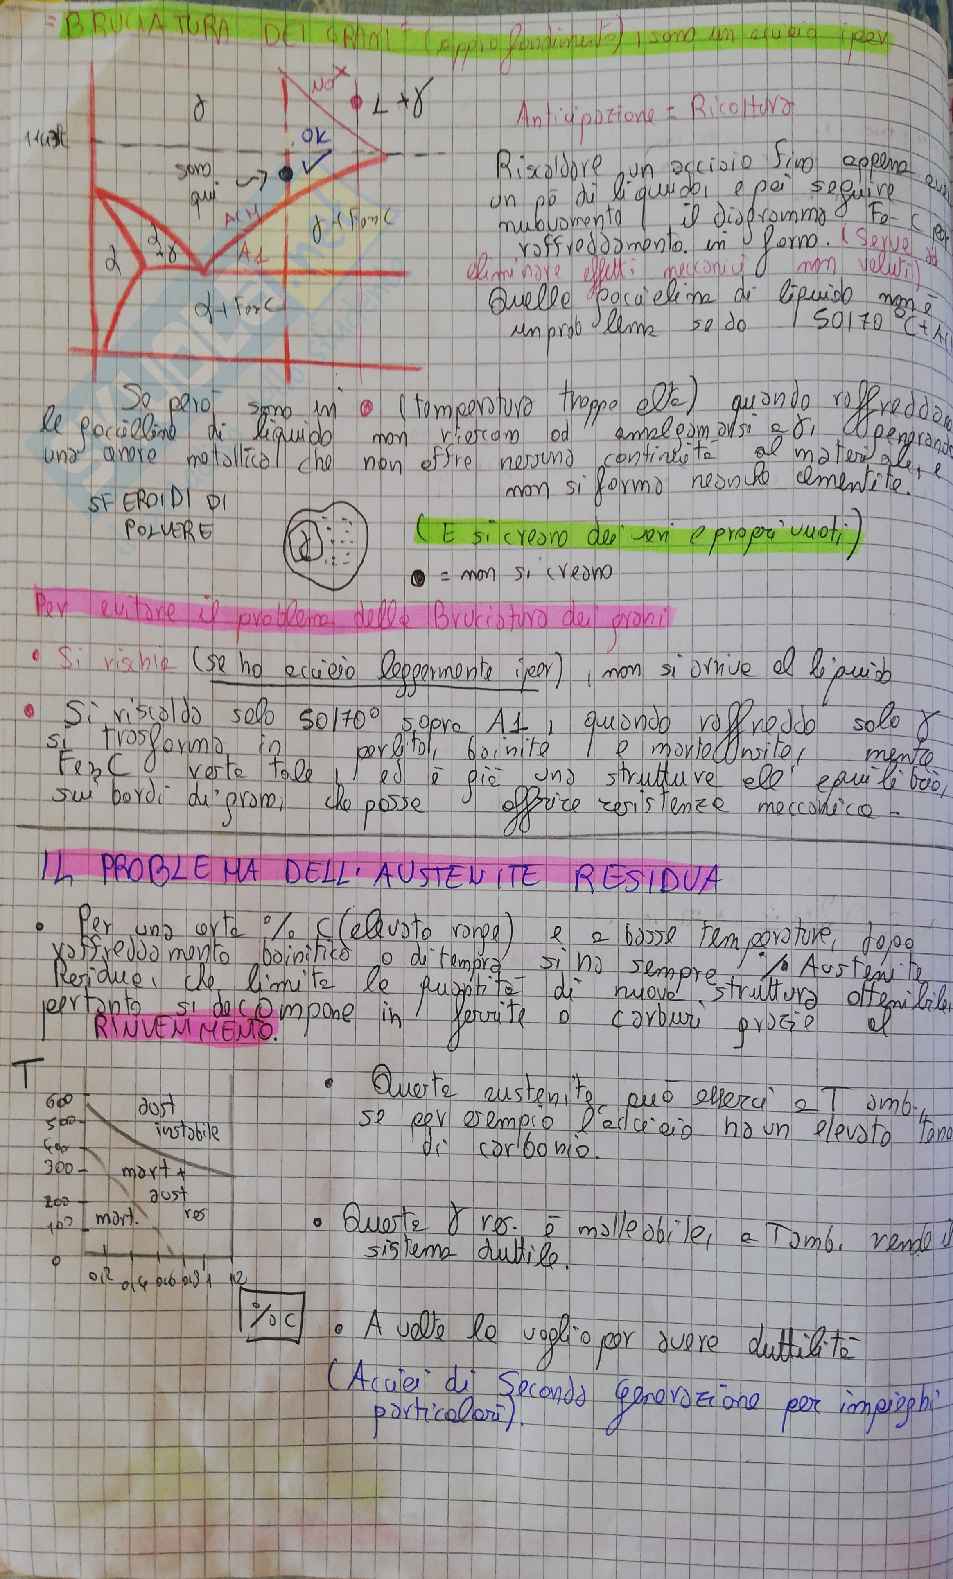 = BRUCIATURA DEI GRANI (approfondimento), sono un acciaio iper
NO X
γ
L + γ
OK
✓
sono
qui
Acm
γ + Fe₃C
α + γ
α
A1
α + Fe₃C
Anticipazione = Ricottura
Riscaldare un acciaio fino appena
un pò di liquido, e poi seguire
nuovamente il diagramma Fe-C per
raffreddamento in forno. (Serve ad
eliminare effetti meccanici non voluti)
Quelle goccioline di liquido non è
un problema se do 50/70 °C + A1
Se però sono in • (temperatura troppo alta) quando raffreddo
le goccioline di liquido non riescono ad amalgamarsi a γ,
una cenere metallica che non offre nessuna continuità al materiale, e
non si forma neanche cementite.
SFEROIDI DI
POLVERE
(E si creano dei veri e propri vuoti)
• = non si creano
Per evitare il problema della Bruciatura dei grani
• Si rischia (se ho acciaio leggermente iper), non si arrive al liquido
• Si riscalda solo 50/70° sopra A1, quando raffreddo solo γ
si trasforma in perlite, bainite e martensite, mentre
Fe₃C resta tale, ed è già una struttura all'equilibrio,
sui bordi di grani, che posse offrire resistenza meccanica -
IL PROBLEMA DELL'AUSTENITE RESIDUA
• Per una certa % C (elevato range) e a basse temperature, dopo
raffreddamento bainitico o di tempra si ha sempre % Austenite
Residua, che limita le quantità di nuova struttura ottenibile,
pertanto si decompone in ferrite o carburi grazie al
RINVENIMENTO.
T
600
500
400
300
200
100
0
aust
instabile
mart +
aust
res
mart.
0,2 0,4 0,6 0,8 1 1,2
% C
• Questa austenite può esserci a T amb.,
se per esempio l'acciaio ha un elevato tenore
di carbonio.
• Questa γ res. è malleabile, a Tamb. rende il
sistema duttile.
• A volte la voglio per avere duttilità
(Acciai di Seconda Generazione per impieghi
particolari).